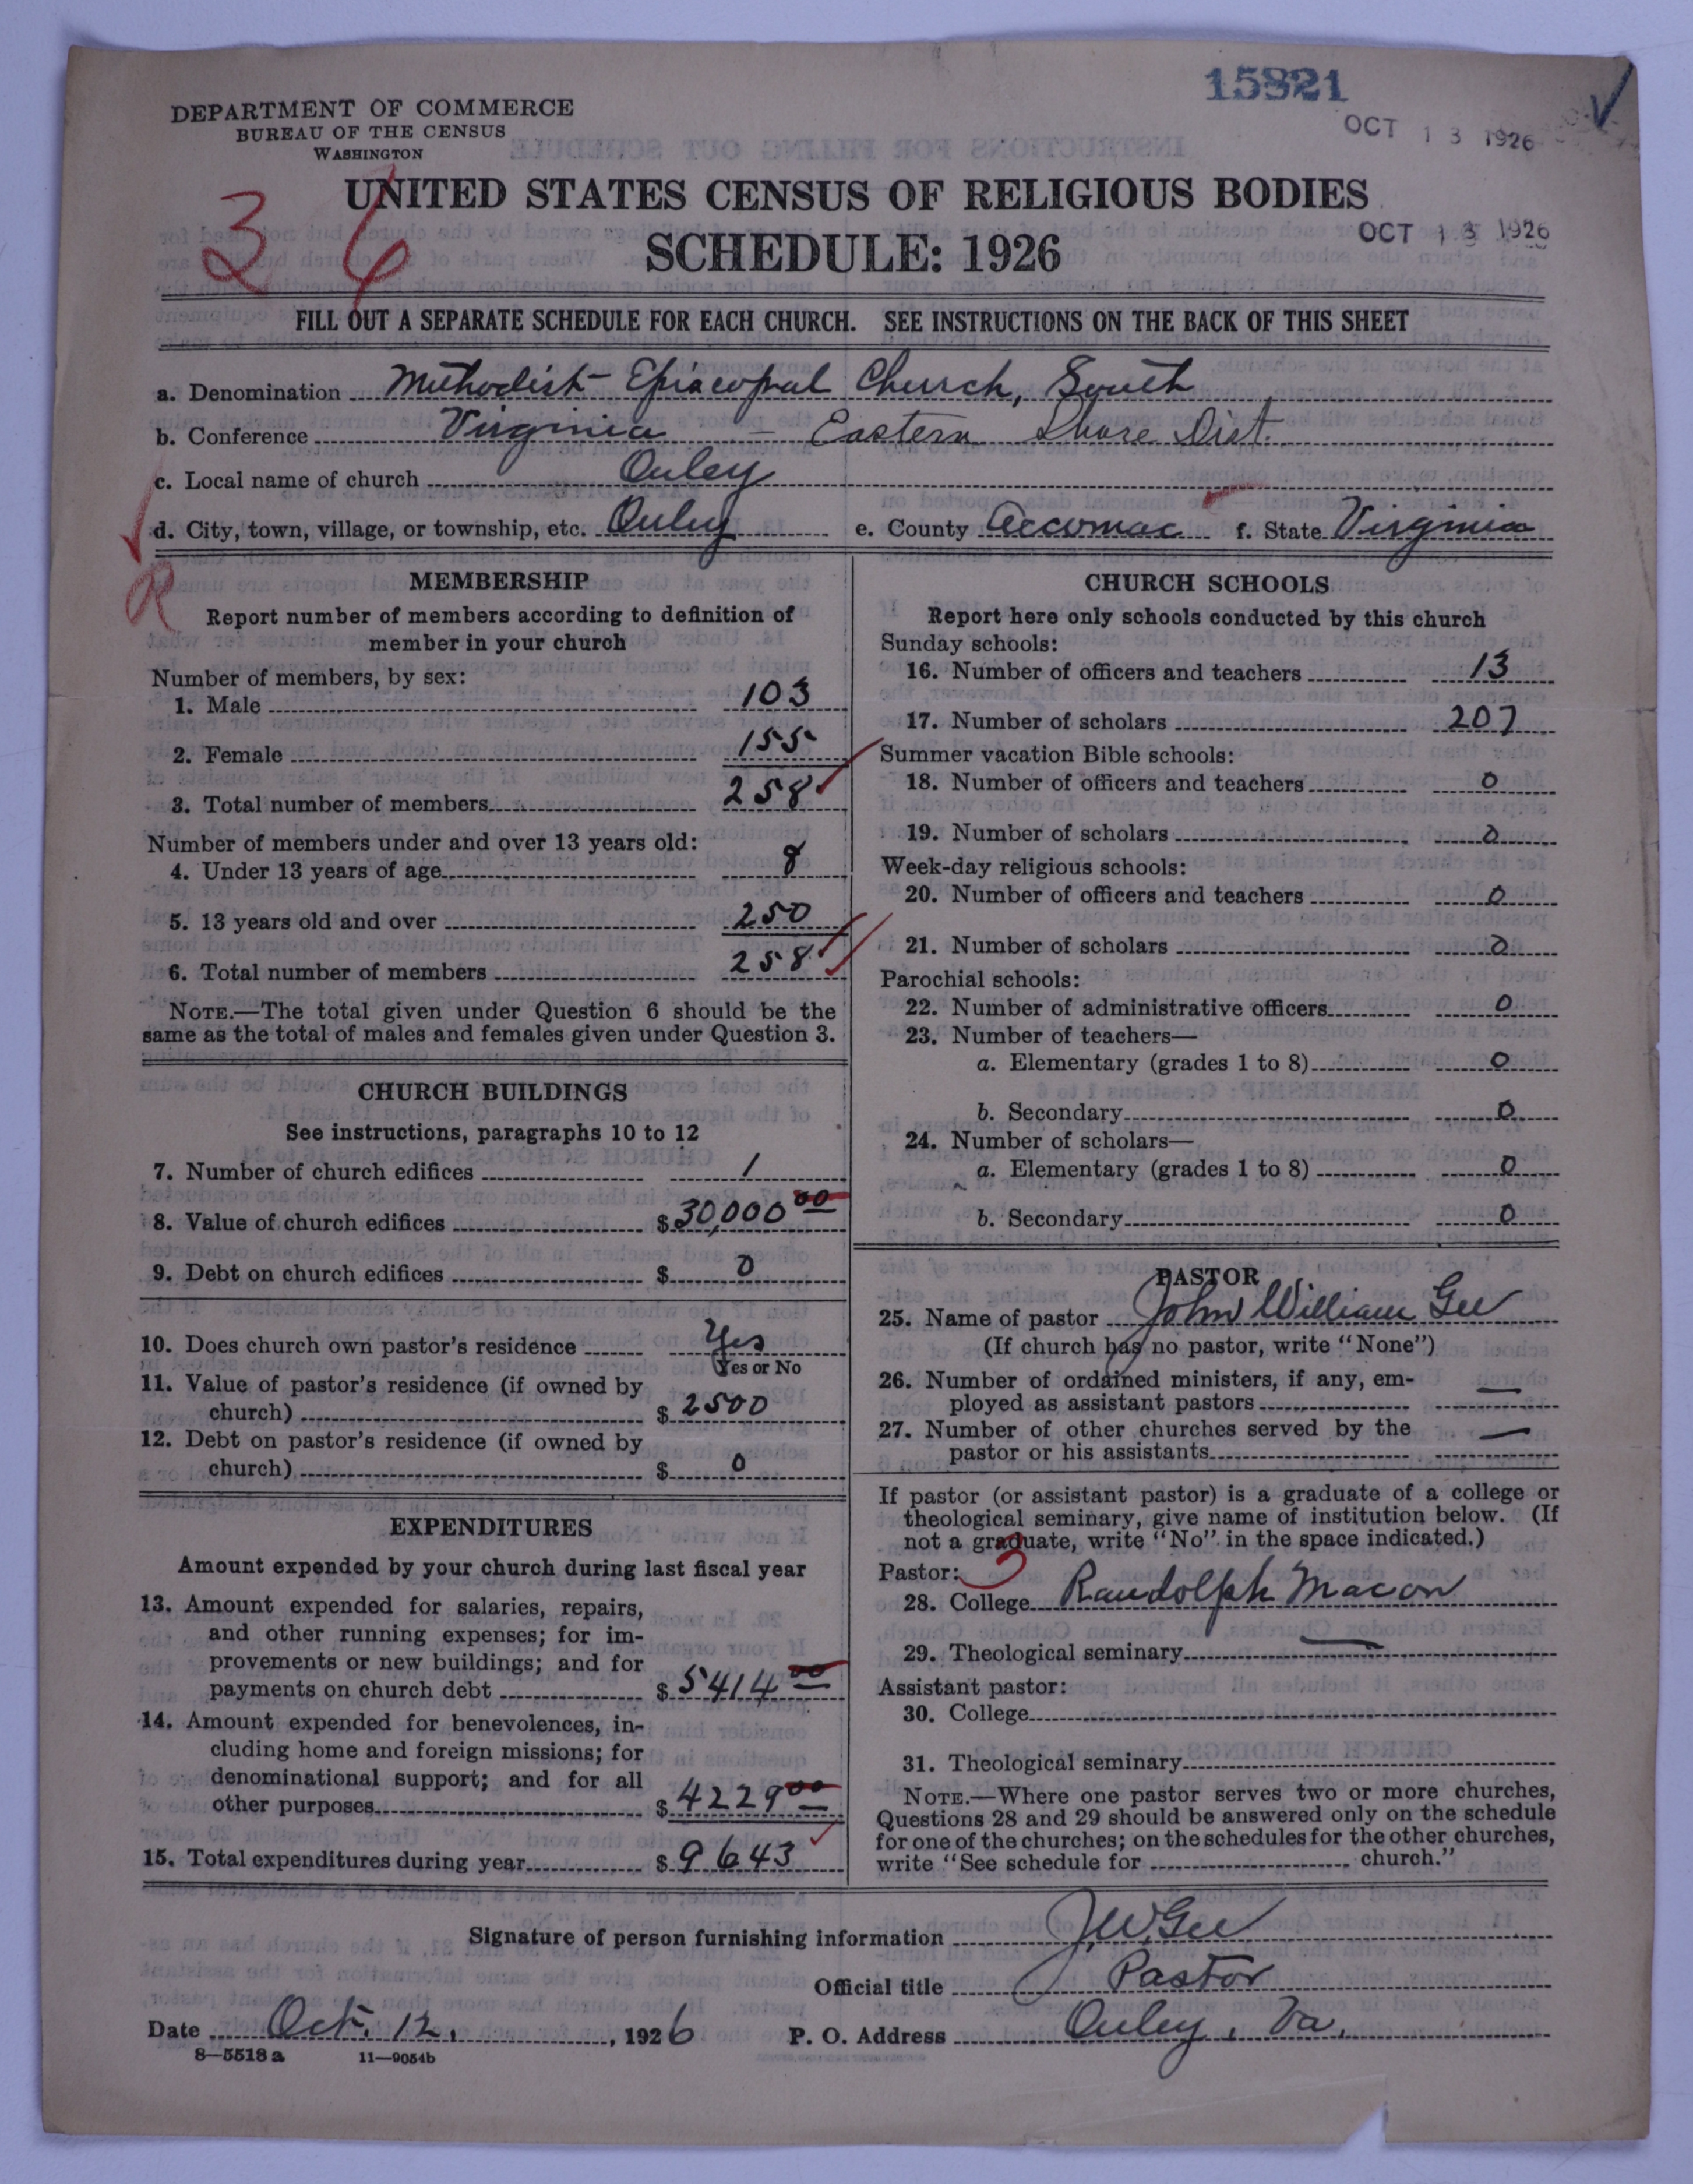 15821
OCT 13 1926
DEPARTMENT OF COMMERCE
BUREAU OF THE CENSUS
WASHINGTON
36
UNITED STATES CENSUS OF RELIGIOUS BODIES
SCHEDULE: 1926
OCT 13 1926
FILL OUT A SEPARATE SCHEDULE FOR EACH CHURCH. SEE INSTRUCTIONS ON THE BACK OF THIS SHEET
a. Denomination Methodist Episcopal Church, South
b. Conference Virginia – Eastern Shore Dist.
c. Local name of church Onley
d. City, town, village, or township, etc. Onley e. County Accomac f. State Virginia
R
MEMBERSHIP
Report number of members according to definition of
member in your church
Number of members, by sex:
1. Male 103
2. Female 155
3. Total number of members 258
Number of members under and over 13 years old:
4. Under 13 years of age 8
5. 13 years old and over 250
6. Total number of members 258
NOTE.—The total given under Question 6 should be the
same as the total of males and females given under Question 3.
CHURCH BUILDINGS
See instructions, paragraphs 10 to 12
7. Number of church edifices 1
8. Value of church edifices $30,000 00
9. Debt on church edifices $ 0
10. Does church own pastor's residence Yes
Yes or No
11. Value of pastor's residence (if owned by
church) $ 2500
12. Debt on pastor's residence (if owned by
church) $ 0
EXPENDITURES
Amount expended by your church during last fiscal year
13. Amount expended for salaries, repairs,
and other running expenses; for im-
provements or new buildings; and for
payments on church debt $ 5414 00
14. Amount expended for benevolences, in-
cluding home and foreign missions; for
denominational support; and for all
other purposes $ 4229 00
15. Total expenditures during year $ 9643
CHURCH SCHOOLS
Report here only schools conducted by this church
Sunday schools:
16. Number of officers and teachers 13
17. Number of scholars 207
Summer vacation Bible schools:
18. Number of officers and teachers 0
19. Number of scholars 0
Week-day religious schools:
20. Number of officers and teachers 0
21. Number of scholars 0
Parochial schools:
22. Number of administrative officers 0
23. Number of teachers—
a. Elementary (grades 1 to 8) 0
b. Secondary 0
24. Number of scholars—
a. Elementary (grades 1 to 8) 0
b. Secondary 0
PASTOR
25. Name of pastor John William Gee
(If church has no pastor, write "None")
26. Number of ordained ministers, if any, em-
ployed as assistant pastors —
27. Number of other churches served by the
pastor or his assistants —
If pastor (or assistant pastor) is a graduate of a college or
theological seminary, give name of institution below. (If
not a graduate, write "No" in the space indicated.)
Pastor: 3
28. College Randolph Macon
29. Theological seminary —
Assistant pastor:
30. College
31. Theological seminary
NOTE.—Where one pastor serves two or more churches,
Questions 28 and 29 should be answered only on the schedule
for one of the churches; on the schedules for the other churches,
write "See schedule for church."
Signature of person furnishing information J.W. Gee
Official title Pastor
Date Oct. 12, 1926 P. O. Address Onley, Va.
8—5518 a 11—9054b